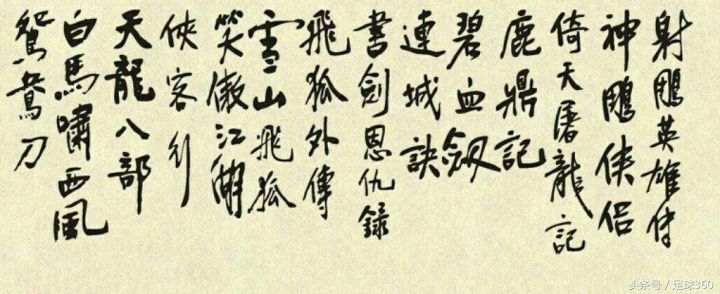 射鵰英雄传
神鵰侠侣
倚天屠龍記
鹿鼎記
碧血劔
連城訣
書劍恩仇録
飛狐外傳
雪山飛狐
笑傲江湖
俠客行
天龍八部
白馬嘯西風
鴛鴦刀
头条号 / 足球360